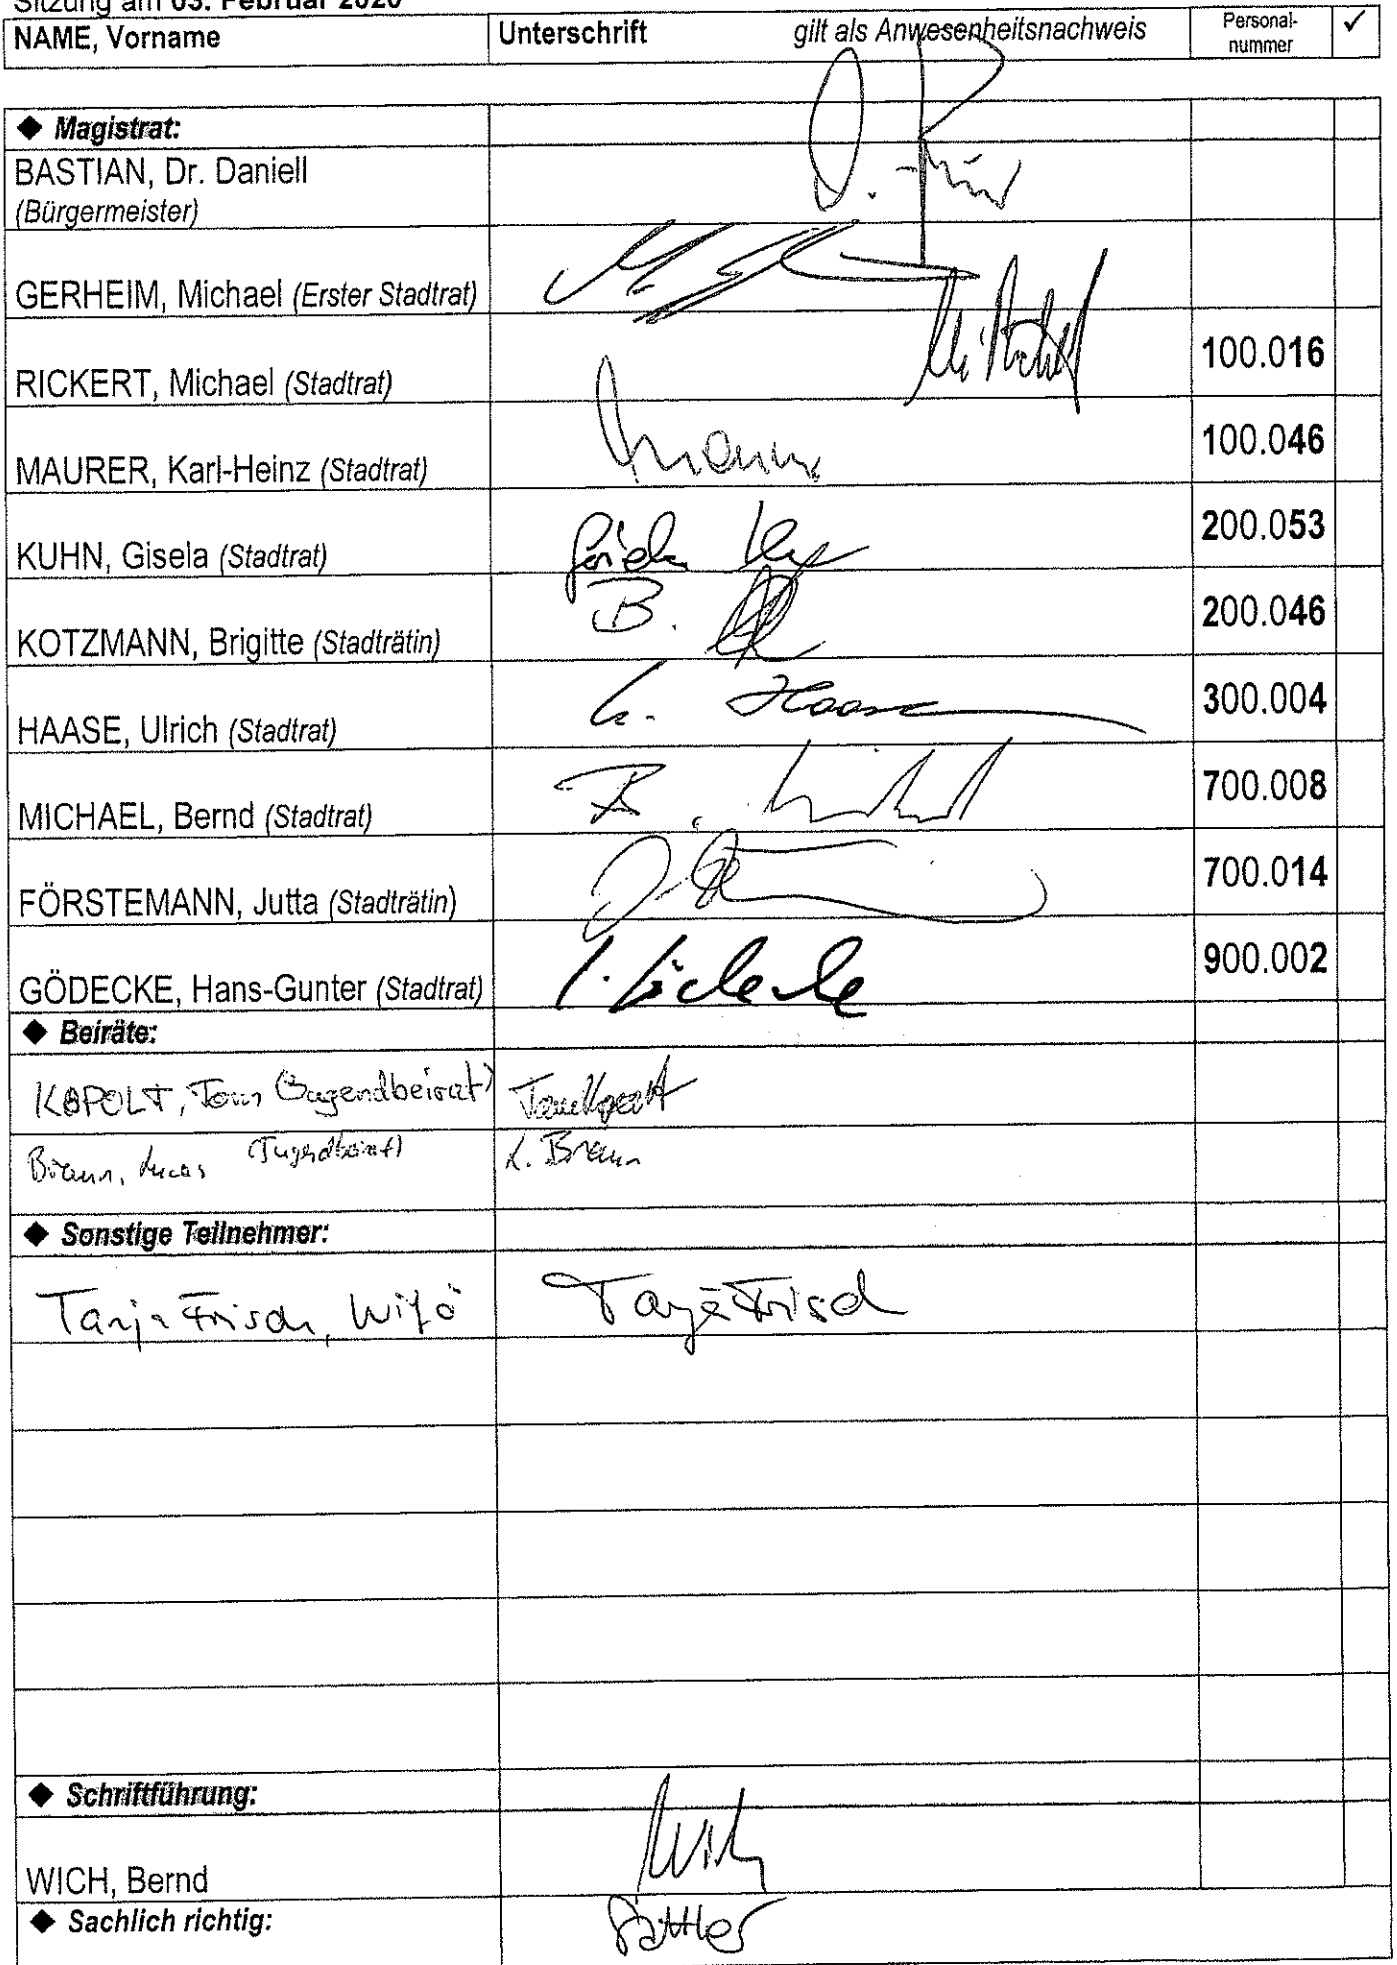 Sitzung am 03. Februar 2020
NAME, Vorname Unterschrift gilt als Anwesenheitsnachweis Personal-
nummer ✓
◆ Magistrat:
BASTIAN, Dr. Daniell
(Bürgermeister)
GERHEIM, Michael (Erster Stadtrat)
RICKERT, Michael (Stadtrat) 100.016
MAURER, Karl-Heinz (Stadtrat) 100.046
KUHN, Gisela (Stadtrat) 200.053
KOTZMANN, Brigitte (Stadträtin) B. 200.046
HAASE, Ulrich (Stadtrat) Haase 300.004
MICHAEL, Bernd (Stadtrat) 700.008
FÖRSTEMANN, Jutta (Stadträtin) 700.014
GÖDECKE, Hans-Gunter (Stadtrat) 900.002
◆ Beiräte:
Tom (Jugendbeirat)
Braun, Lucas (Jugendbeirat) L. Braun
◆ Sonstige Teilnehmer:
Tanja Frisch, Wifö Tanja Frisch
◆ Schriftführung:
WICH, Bernd Wich
◆ Sachlich richtig: